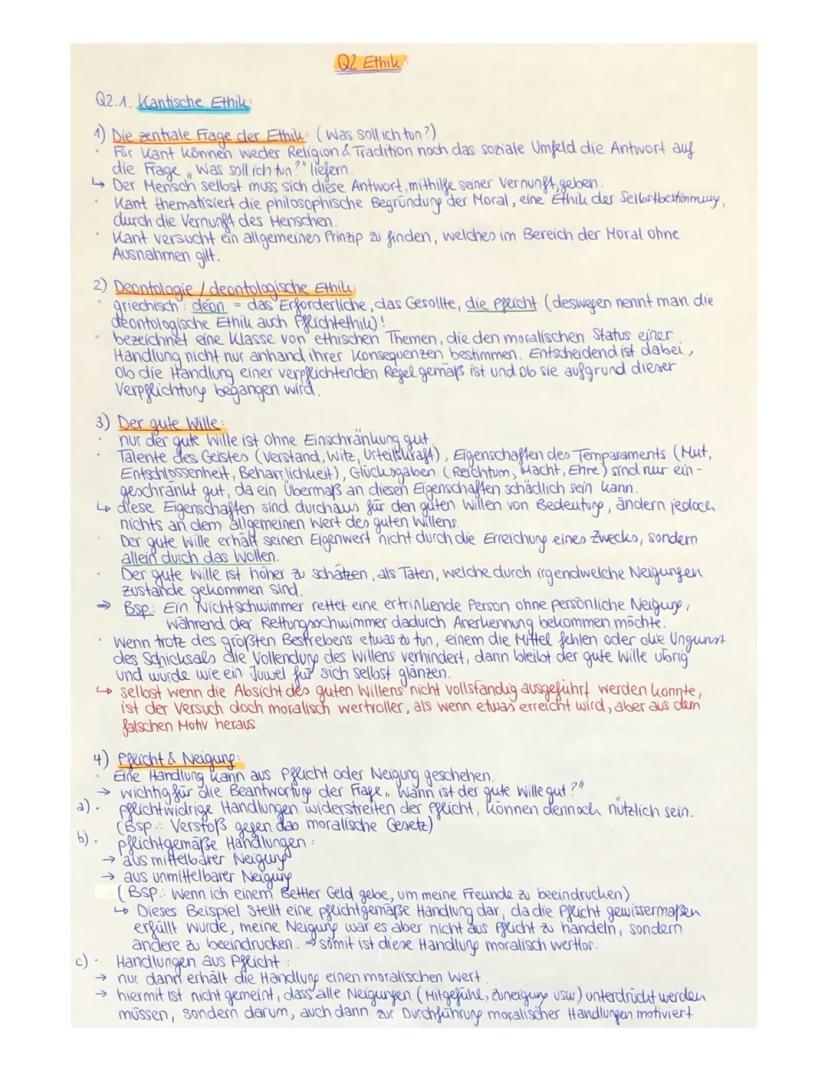 Q2 Ethik
Q2.1. Kantische Ethik:
1) Die zentrale Frage der Ethik: (Was soll ich tun?)
· Für Kant können weder Religion & Tradition noch das soziale Umfeld die Antwort auf
die Frage „Was soll ich tun?" liefern.
↳ Der Mensch selbst muss sich diese Antwort, mithilfe seiner Vernunft, geben.
· Kant thematisiert die philosophische Begründung der Moral, eine Ethik der Selbstbestimmung,
durch die Vernunft des Menschen.
· Kant versucht ein allgemeines Prinzip zu finden, welches im Bereich der Moral ohne
Ausnahmen gilt.
2) Deontologie / deontologische Ethik:
· griechisch: déon = das Erforderliche, das Gesollte, die Pflicht (deswegen nennt man die
deontologische Ethik auch Pflichtethik)!
· bezeichnet eine Klasse von ethischen Themen, die den moralischen Status einer
Handlung nicht nur anhand ihrer Konsequenzen bestimmen. Entscheidend ist dabei,
ob die Handlung einer verpflichtenden Regel gemäß ist und ob sie aufgrund dieser
Verpflichtung begangen wird.
3) Der gute Wille:
· nur der gute Wille ist ohne Einschränkung gut.
· Talente des Geistes (Verstand, Witz, Urteilskraft), Eigenschaften des Temparaments (Mut,
Entschlossenheit, Beharrlichkeit), Glücksgaben (Reichtum, Macht, Ehre) sind nur ein-
geschränkt gut, da ein Übermaß an diesen Eigenschaften schädlich sein kann.
↳ diese Eigenschaften sind durchaus für den guten Willen von Bedeutung, ändern jedoch
nichts an dem allgemeinen Wert des guten Willens.
· Der gute Wille erhält seinen Eigenwert nicht durch die Erreichung eines Zwecks, sondern
allein durch das Wollen.
· Der gute Wille ist höher zu schätzen, als Taten, welche durch irgendwelche Neigungen
zustande gekommen sind.
→ Bsp: Ein Nichtschwimmer rettet eine ertrinkende Person ohne persönliche Neigung,
während der Rettungsschwimmer dadurch Anerkennung bekommen möchte.
· Wenn trotz des größten Bestrebens etwas zu tun, einem die Mittel fehlen oder die Ungunst
des Schicksals die Vollendung des Willens verhindert, dann bleibt der gute Wille übrig
und würde wie ein Juwel für sich selbst glänzen.
↳ selbst wenn die Absicht des guten Willens nicht vollständig ausgeführt werden konnte,
ist der Versuch doch moralisch wertvoller, als wenn etwas erreicht wird, aber aus dem
falschen Motiv heraus.
4) Pflicht & Neigung:
· Eine Handlung kann aus Pflicht oder Neigung geschehen.
→ wichtig für die Beantwortung der Frage „Wann ist der gute Wille gut?"
a) · pflichtwidrige Handlungen widerstreiten der Pflicht, können dennoch nützlich sein.
(Bsp.: Verstoß gegen das moralische Gesetz)
b) · pflichtgemäße Handlungen:
→ aus mittelbarer Neigung
→ aus unmittelbarer Neigung
(Bsp.: Wenn ich einem Bettler Geld gebe, um meine Freunde zu beeindrucken)
↳ Dieses Beispiel stellt eine pflichtgemäße Handlung dar, da die Pflicht gewissermaßen
erfüllt wurde, meine Neigung war es aber nicht aus Pflicht zu handeln, sondern
andere zu beeindrucken. → somit ist diese Handlung moralisch wertlos.
c) · Handlungen aus Pflicht:
→ nur dann erhält die Handlung einen moralischen Wert.
→ hiermit ist nicht gemeint, dass alle Neigungen (Mitgefühl, Zuneigung usw) unterdrückt werden
müssen, sondern darum, auch dann zur Durchführung moralischer Handlungen motiviert